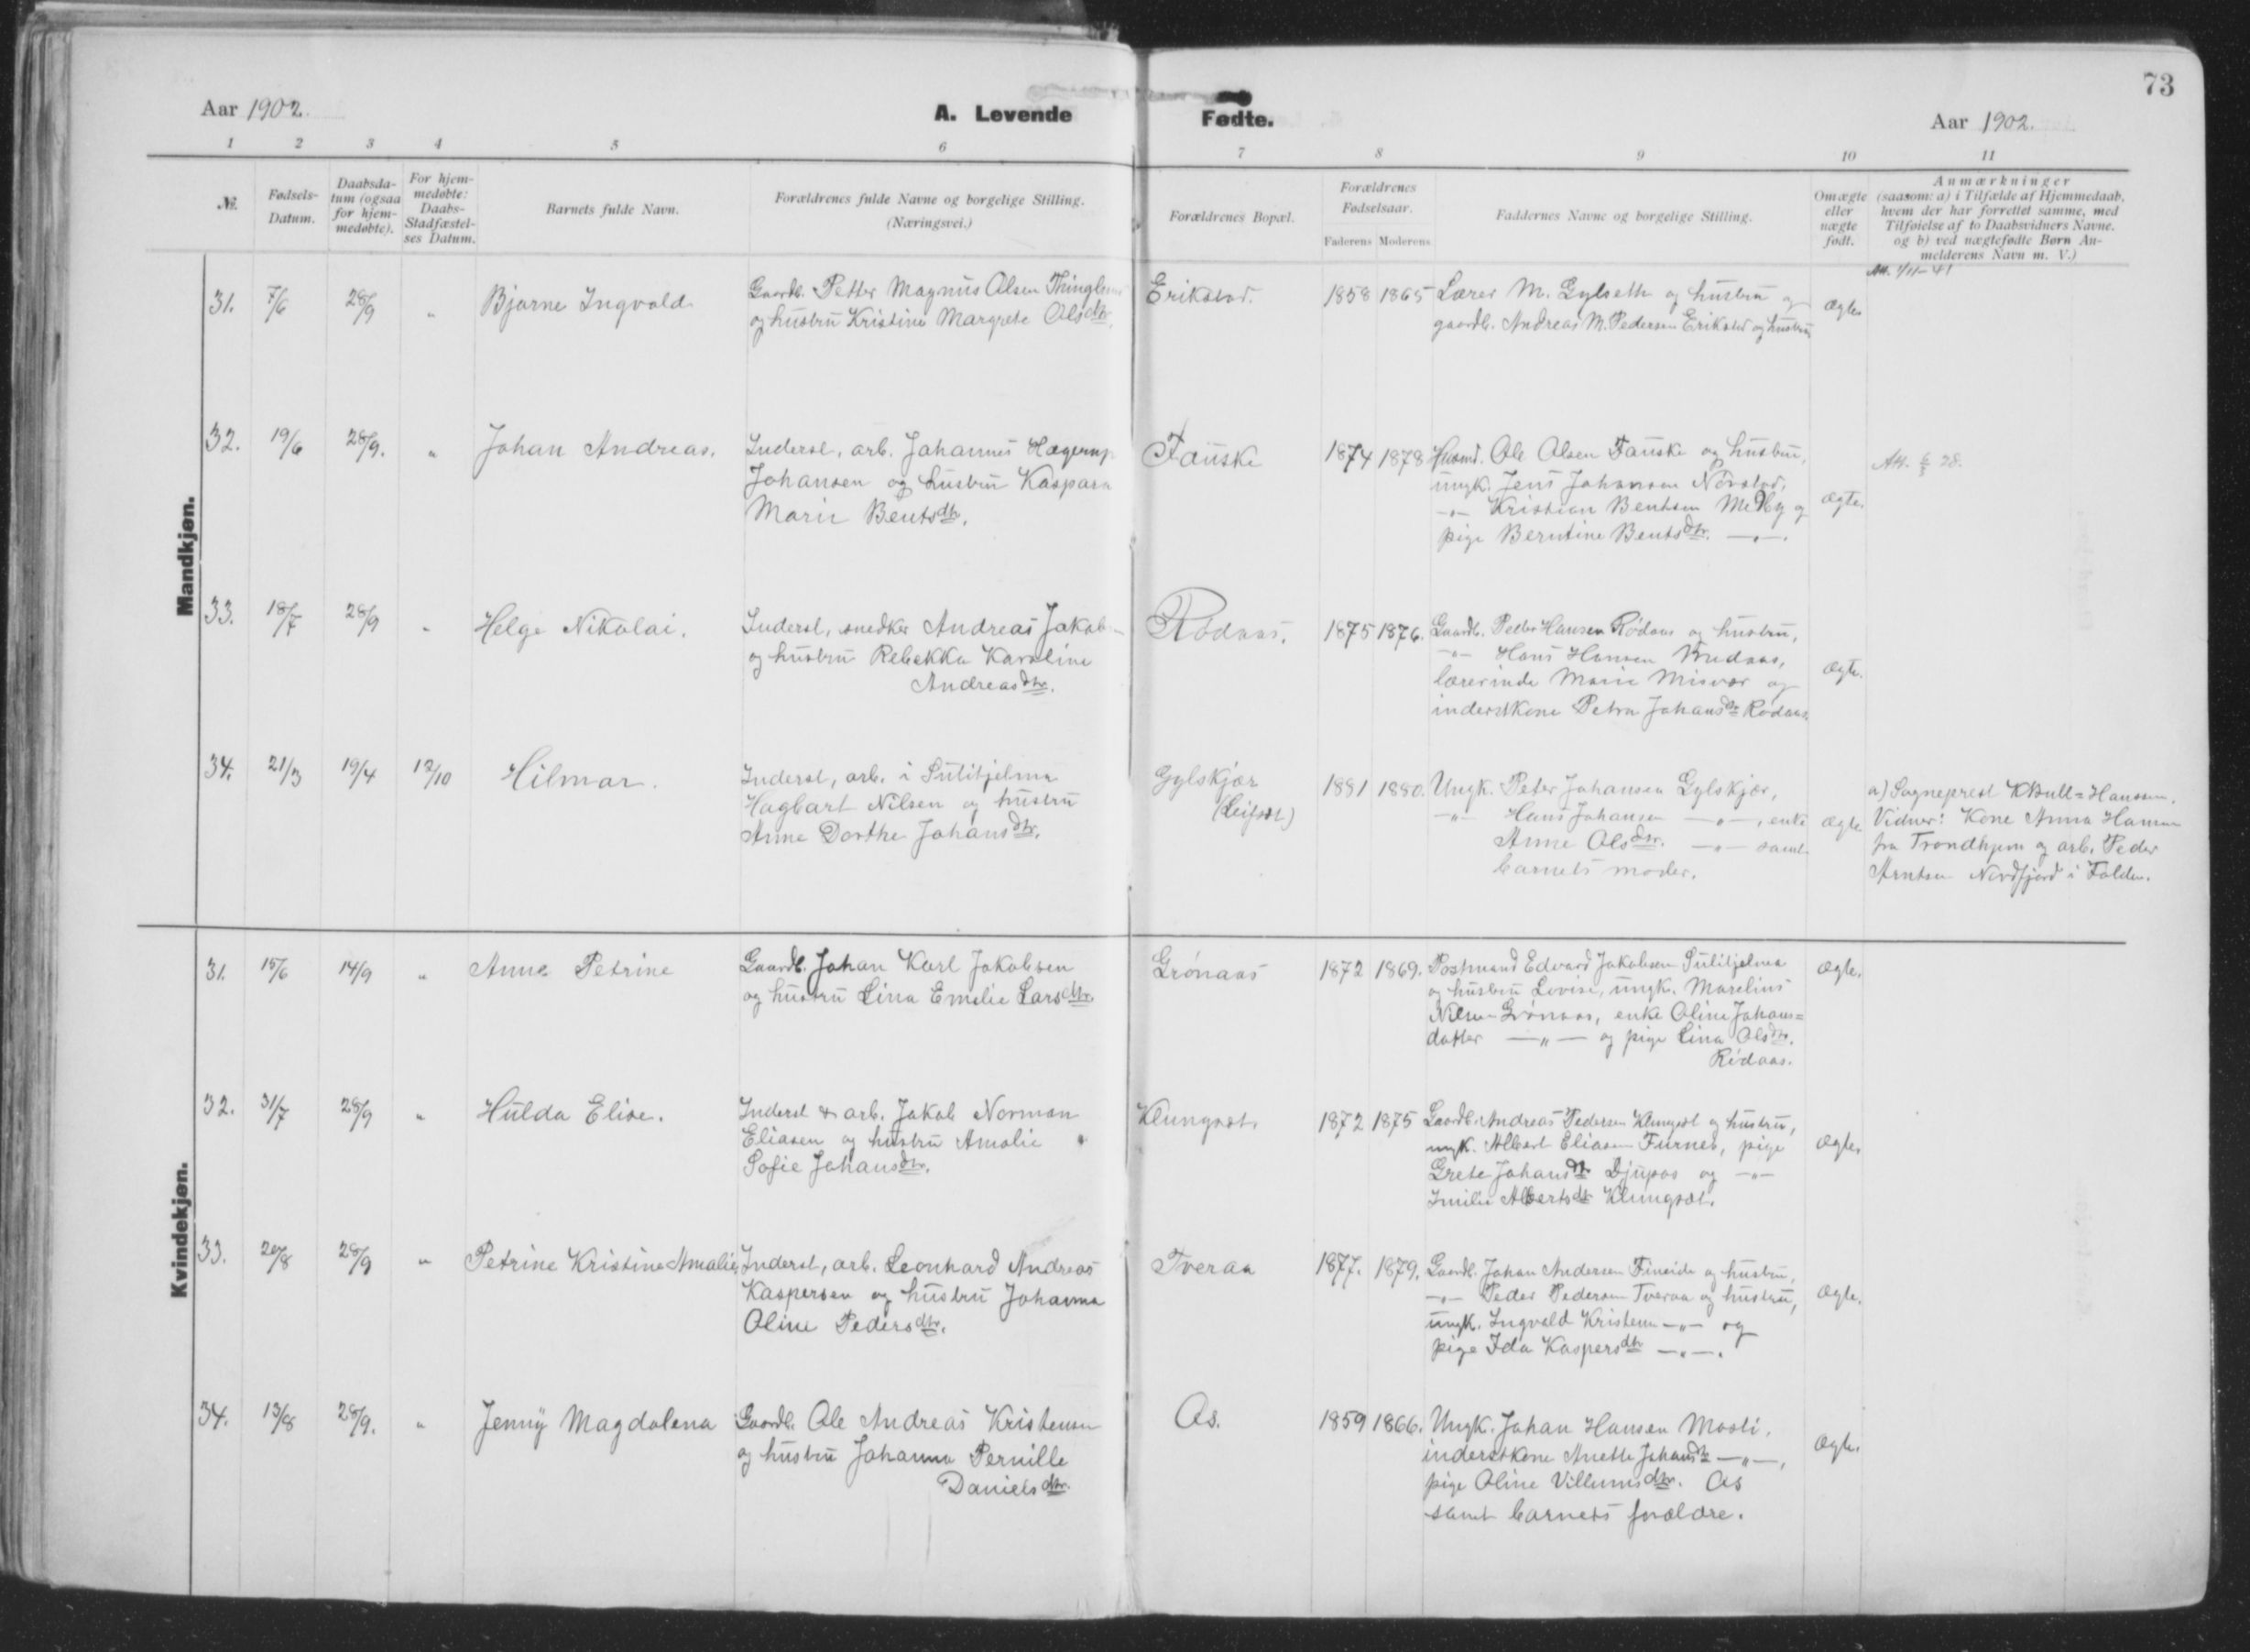 73
Aar 1902.
A. Levende Fødte.
Aar 1902.
1 2 3 4 5 6 7 8 9 10 11
№.
Fødsels-
Datum.
Daabsda-
tum (ogsaa
for hjem-
medøbte).
For hjem-
medøbte:
Daabs-
Stadfæstel-
ses Datum.
Barnets fulde Navn.
Forældrenes fulde Navne og borgelige Stilling.
(Næringsvei.)
Forældrenes Bopæl.
Forældrenes
Fødselsaar.
Faderens Moderens
Faddernes Navne og borgelige Stilling.
Omægte
eller
uægte
født.
Anmærkninger
(saasom: a) i Tilfælde af Hjemmedaab,
hvem der har forrettet samme, med
Tilføielse af to Daabsvidners Navne.
og b) ved uægtefødte Børn An-
melderens Navn m. V.)
Mandkjøn.
31. 7/6 28/9 " Bjarne Ingvald
Gaardb. Petter Magnus Olsen
og hustru Kristine Margrete Olsdtr.
Erikstad.
1858 1865
Lærer M. Gylseth og hustru og
gaardb. Andreas M. Pedersen Erikstad og hustru
ægte
Att. 1/11-41
32. 19/6 28/9. " Johan Andreas.
Inderst, arb. Johannes Hagerup
Johansen og hustru Kaspara
Marie Bentsdtr.
Fauske
1874 1878
Husmd. Ole Olsen Fauske og hustru,
ungk. Jens Johansen Nørstad,
-"- Kristian Bentsen Medby og
pige Berntine Bentsdtr. -"-.
ægte.
Att. 6/3 28.
33. 18/7 28/9 " Helge Nikolai.
Inderst, snedker Andreas Jakob-
og hustru Rebekka Karoline
Andreasdtr.
Rødaas.
1875 1876.
Gaardb. Peder Hansen Rødaas og hustru,
-"- Hans Hansen
lærerinde Marie Misvær og
inderstkone Petra Johansdtr Rødaas.
ægte.
34. 21/3 19/4 12/10 Hilmar.
Inderst, arb. i Sulitjelma
Hagbart Nilsen og hustru
Anne Dorthe Johansdtr.
Gylskjær
(Leifset)
1881 1880.
Ungk. Peter Johansen Gylskjær,
-"- Hans Johansen -"-, enke
Anne Olsdtr. -"- samt
barnets moder.
ægte
a) Sogneprest K Bull=Hanssen.
Vidner: Kone Anna Hansen
fra Trondhjem og arb. Peder
Arntsen Nordfjord i Folden.
Kvindekjøn.
31. 15/6 14/9 " Anna Petrine
Gaardb. Johan Karl Jakobsen
og hustru Lina Emelie Larsdtr.
Grønaas
1872 1869.
Postmand Edvard Jakobsen Sulitjelma
og hustru Lovise, ungk. Marelius
Nilsen Grønaas, enke Oline Johans=
datter -"- og pige Lina Olsdtr.
Rødaas.
ægte.
32. 31/7 28/9 " Hulda Elise.
Inderst & arb. Jakob Norman
Eliasen og hustru Amalie
Sofie Johansdtr.
Klungset.
1872 1875
Gaardb. Andreas Pedersen Klungset og hustru,
ungk. Albert Eliasen Furnes, pige
Grete Johansdtr Djupos og -"-
Emilie Albertsdtr Klungset.
ægte
33. 20/8 28/9 " Petrine Kristine Amalie
Inderst, arb. Leonhard Andreas
Kaspersen og hustru Johanna
Oline Pedersdtr.
Tveraa
1877. 1879.
Gaardb. Johan Andersen Fineide og hustru,
-"- Peder Pedersen Tveraa og hustru,
ungk. Ingvald Kristensen -"- og
pige Ida Kaspersdtr -"-.
ægte.
34. 13/8 28/9. " Jenny Magdalena
Gaardb. Ole Andreas Kristensen
og hustru Johanna Pernille
Danielsdtr.
As.
1859 1866.
Ungk. Johan Hansen Mosti,
inderstkone Anette Johansdtr -"-,
pige Oline Villumsdtr. As
samt barnets forældre.
ægte.